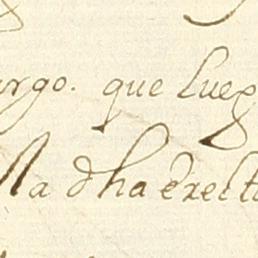 urgo. que lueg
lla dha erect